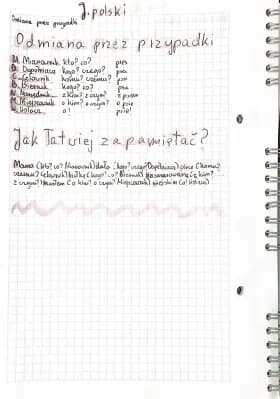 J. polski
Odmiana przez przypadki
Odmiana przez przypadki
M. Mianownik kto? co? pies
D. Dopełniacz kogo? czego? psa
C. Celownik komu? czemu? psu
B. Biernik kogo? co? psa
N. Narzędnik z kim? z czym? z psem
M. Miejscownik o kim? o czym? o psie
W. Wołacz o! psie!
Jak łatwiej zapamiętać?
Mama (kto? co? Mianownik) dała (kogo? czego? Dopełniacz) (komu?
czemu? Celownik) bułkę (kogo? co? Biernik) posmarowaną (z kim?
z czym? (o kim? o czym? Miejscownik) (o! Wołacz)